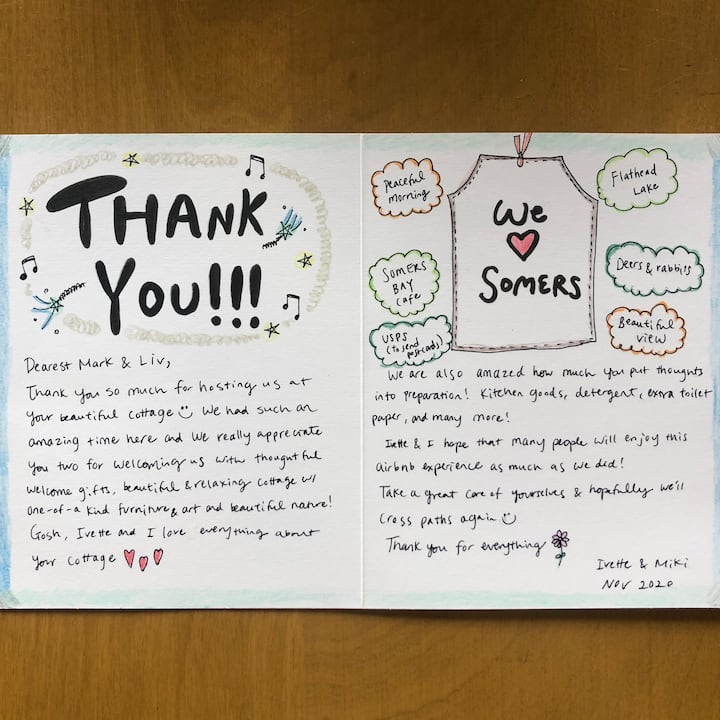 THANK
YOU!!!
Dearest Mark & Liv,
Thank you so much for hosting us at
your beautiful cottage We had such an
amazing time here and we really appreciate
you two for welcoming us with thoughtful
welcome gifts, beautiful & relaxing cottage w/
one-of-a kind furniture & art and beautiful nature!
Gosh, Ivette and I love everything about
your cottage
Peaceful
morning
Somers
Bay
cafe
USPS
(to send
postcards)
We
Somers
Flathead
Lake
Deers & rabbits
Beautiful
view
We are also amazed how much you put thoughts
into preparation! Kitchen goods, detergent, extra toilet
paper, and many more!
Ivette & I hope that many people will enjoy this
airbnb experience as much as we did!
Take a great care of yourselves & hopefully we'll
cross paths again
Thank you for everything
Ivette & Miki
Nov 2020